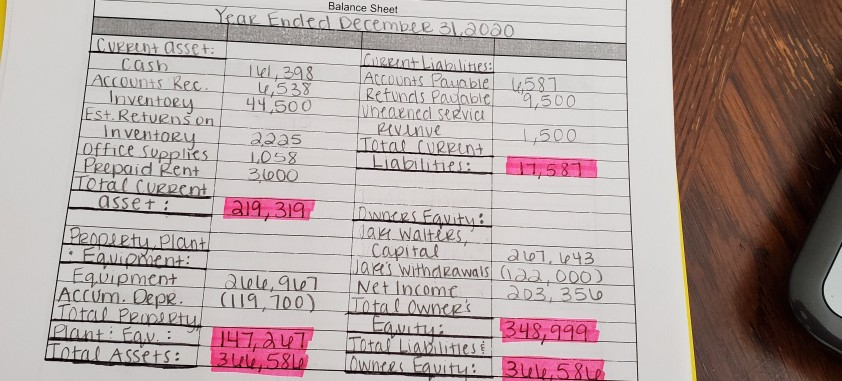 Balance Sheet
Year Ended December 31, 2020
Current asset:
Cash 161,398
Accounts Rec. 6,538
Inventory 44,500
Est. Returns on
Inventory 2,225
Office Supplies 1,058
Prepaid Rent 3,600
Total Current
asset: 219,319
Property, Plant
: Equipment:
Equipment 266,967
Accum. Depr. (119,700)
Total Property,
Plant : Equ. : 147,267
Total Assets: 366,586
Current Liabilities:
Accounts Payable 6,587
Refunds Payable 9,500
Unearned Service
Revenue 1,500
Total Current
Liabilities: 17,587
Owners Equity:
Jake Walters,
Capital 267,643
Jake's Withdrawals (122,000)
Net Income 203,356
Total Owner's
Equity: 348,999
Total Liabilities &
Owners Equity: 366,586